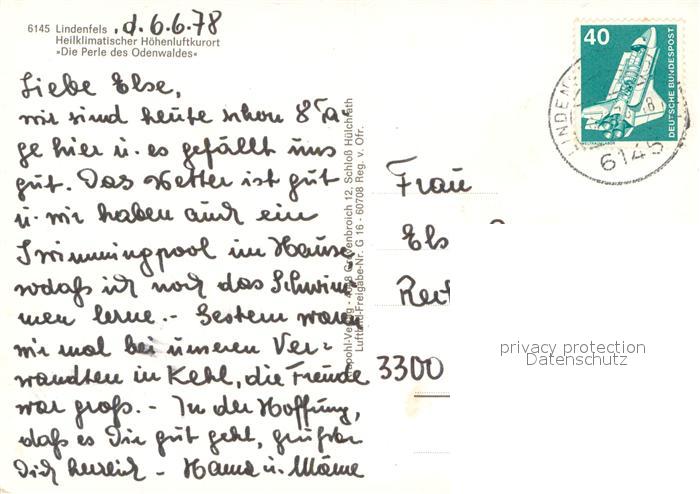 6145 Lindenfels , d. 6.6.78
Heilklimatischer Höhenluftkurort
»Die Perle des Odenwaldes«
Liebe Else,
wir sind heute schon 8 Ta
ge hier u. es gefällt uns
gut. Das Wetter ist gut
u. wir haben auch ein
Swimmingpool im Hause,
sodaß ich noch das Schwim
men lerne. - Gestern waren
wir mal bei unseren Ver=
wandten in Kehl, die Freude
war groß. - In der Hoffnung,
daß es Dir gut geht, grüßen
Dich herzlich -
Krapohl-Verlag - 4048 Grevenbroich 12, Schloß Hülchrath
Luftbild-Freigabe-Nr. G 16 - 60708 Reg. v. Ofr.
40
DEUTSCHE BUNDESPOST
6145
Frau
Els
3300
privacy protection
Datenschutz